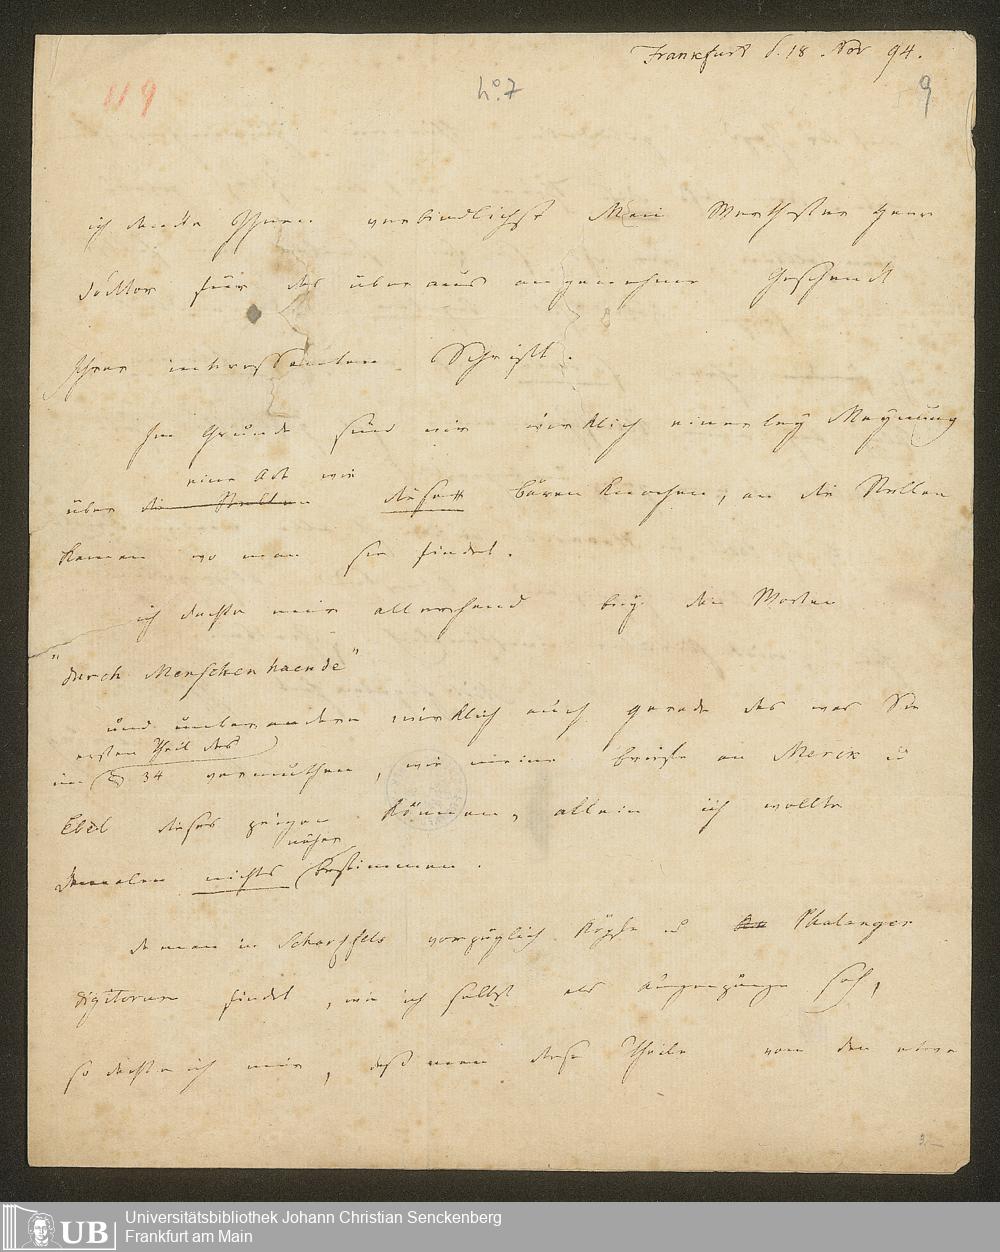 Frankfurt d. 18. Nov 94.
119
No. 7
9
ich danke Ihnen verbindlichst Mein Werthester Herr
Doktor für das überaus angenehme Geschenk
Ihrer interessanten Schrift.
Im Grunde sind wir wirklich einerley Meynung
eine Art wie
über die Stellen diese Bären Knochen, an die Stellen
kamen wo man sie findet.
ich dachte mir allerhand bey den Worten
"durch Menschenhaende"
und unter andern wirklich auch gerade das was Sie
ersten Theil des
im § 34 vermuthen, wie meine briefe an Merck u
Ebel dieses zeigen können, allein ich wollte
näher
damalen nichts bestimmen.
da man in Scharzfels vorzüglich Köpfe u Phalanges
digitorum findet, wie ich selbst als Augenzeuge sah,
so dachte ich mir, daß man diese Theile von den etwa
Universitätsbibliothek Johann Christian Senckenberg
Frankfurt am Main
UB